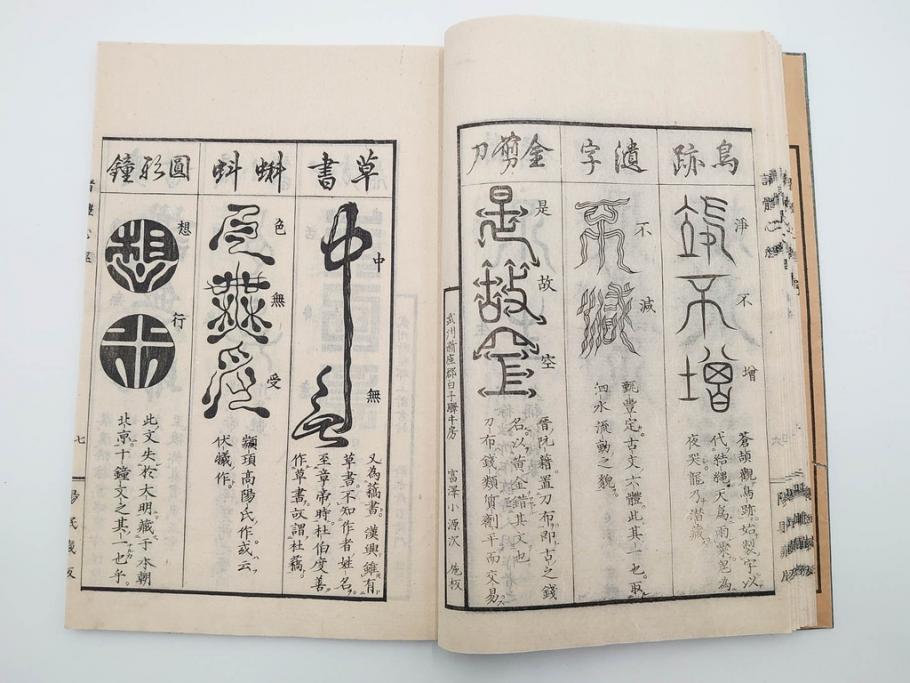 鳥跡
淨不增
蒼頡觀鳥跡、始製字以
代結繩、天為雨粟、鬼為
夜哭、龍乃潛藏。
字
不減
甄豐定古文六體、此其一也、取
泗水流動之貌。
金剪刀
是故空
晉阮籍置刀布、即古之錢
名、以黃金錯其文也
刀布錢類質劑平而交易
座郡白子驛牛房 富澤小源次 施板
草書
中無
又為藁書。漢興、雖有
草書不知作者姓名、
至章帝時、杜伯度善
作草書、故謂杜藁。
蝌蚪
色無受
顓頊高陽氏作、或云、
伏犧作。
圓形鐘
想行
此文失於大明、藏于本朝
北京十鐘文之其一也乎。
七